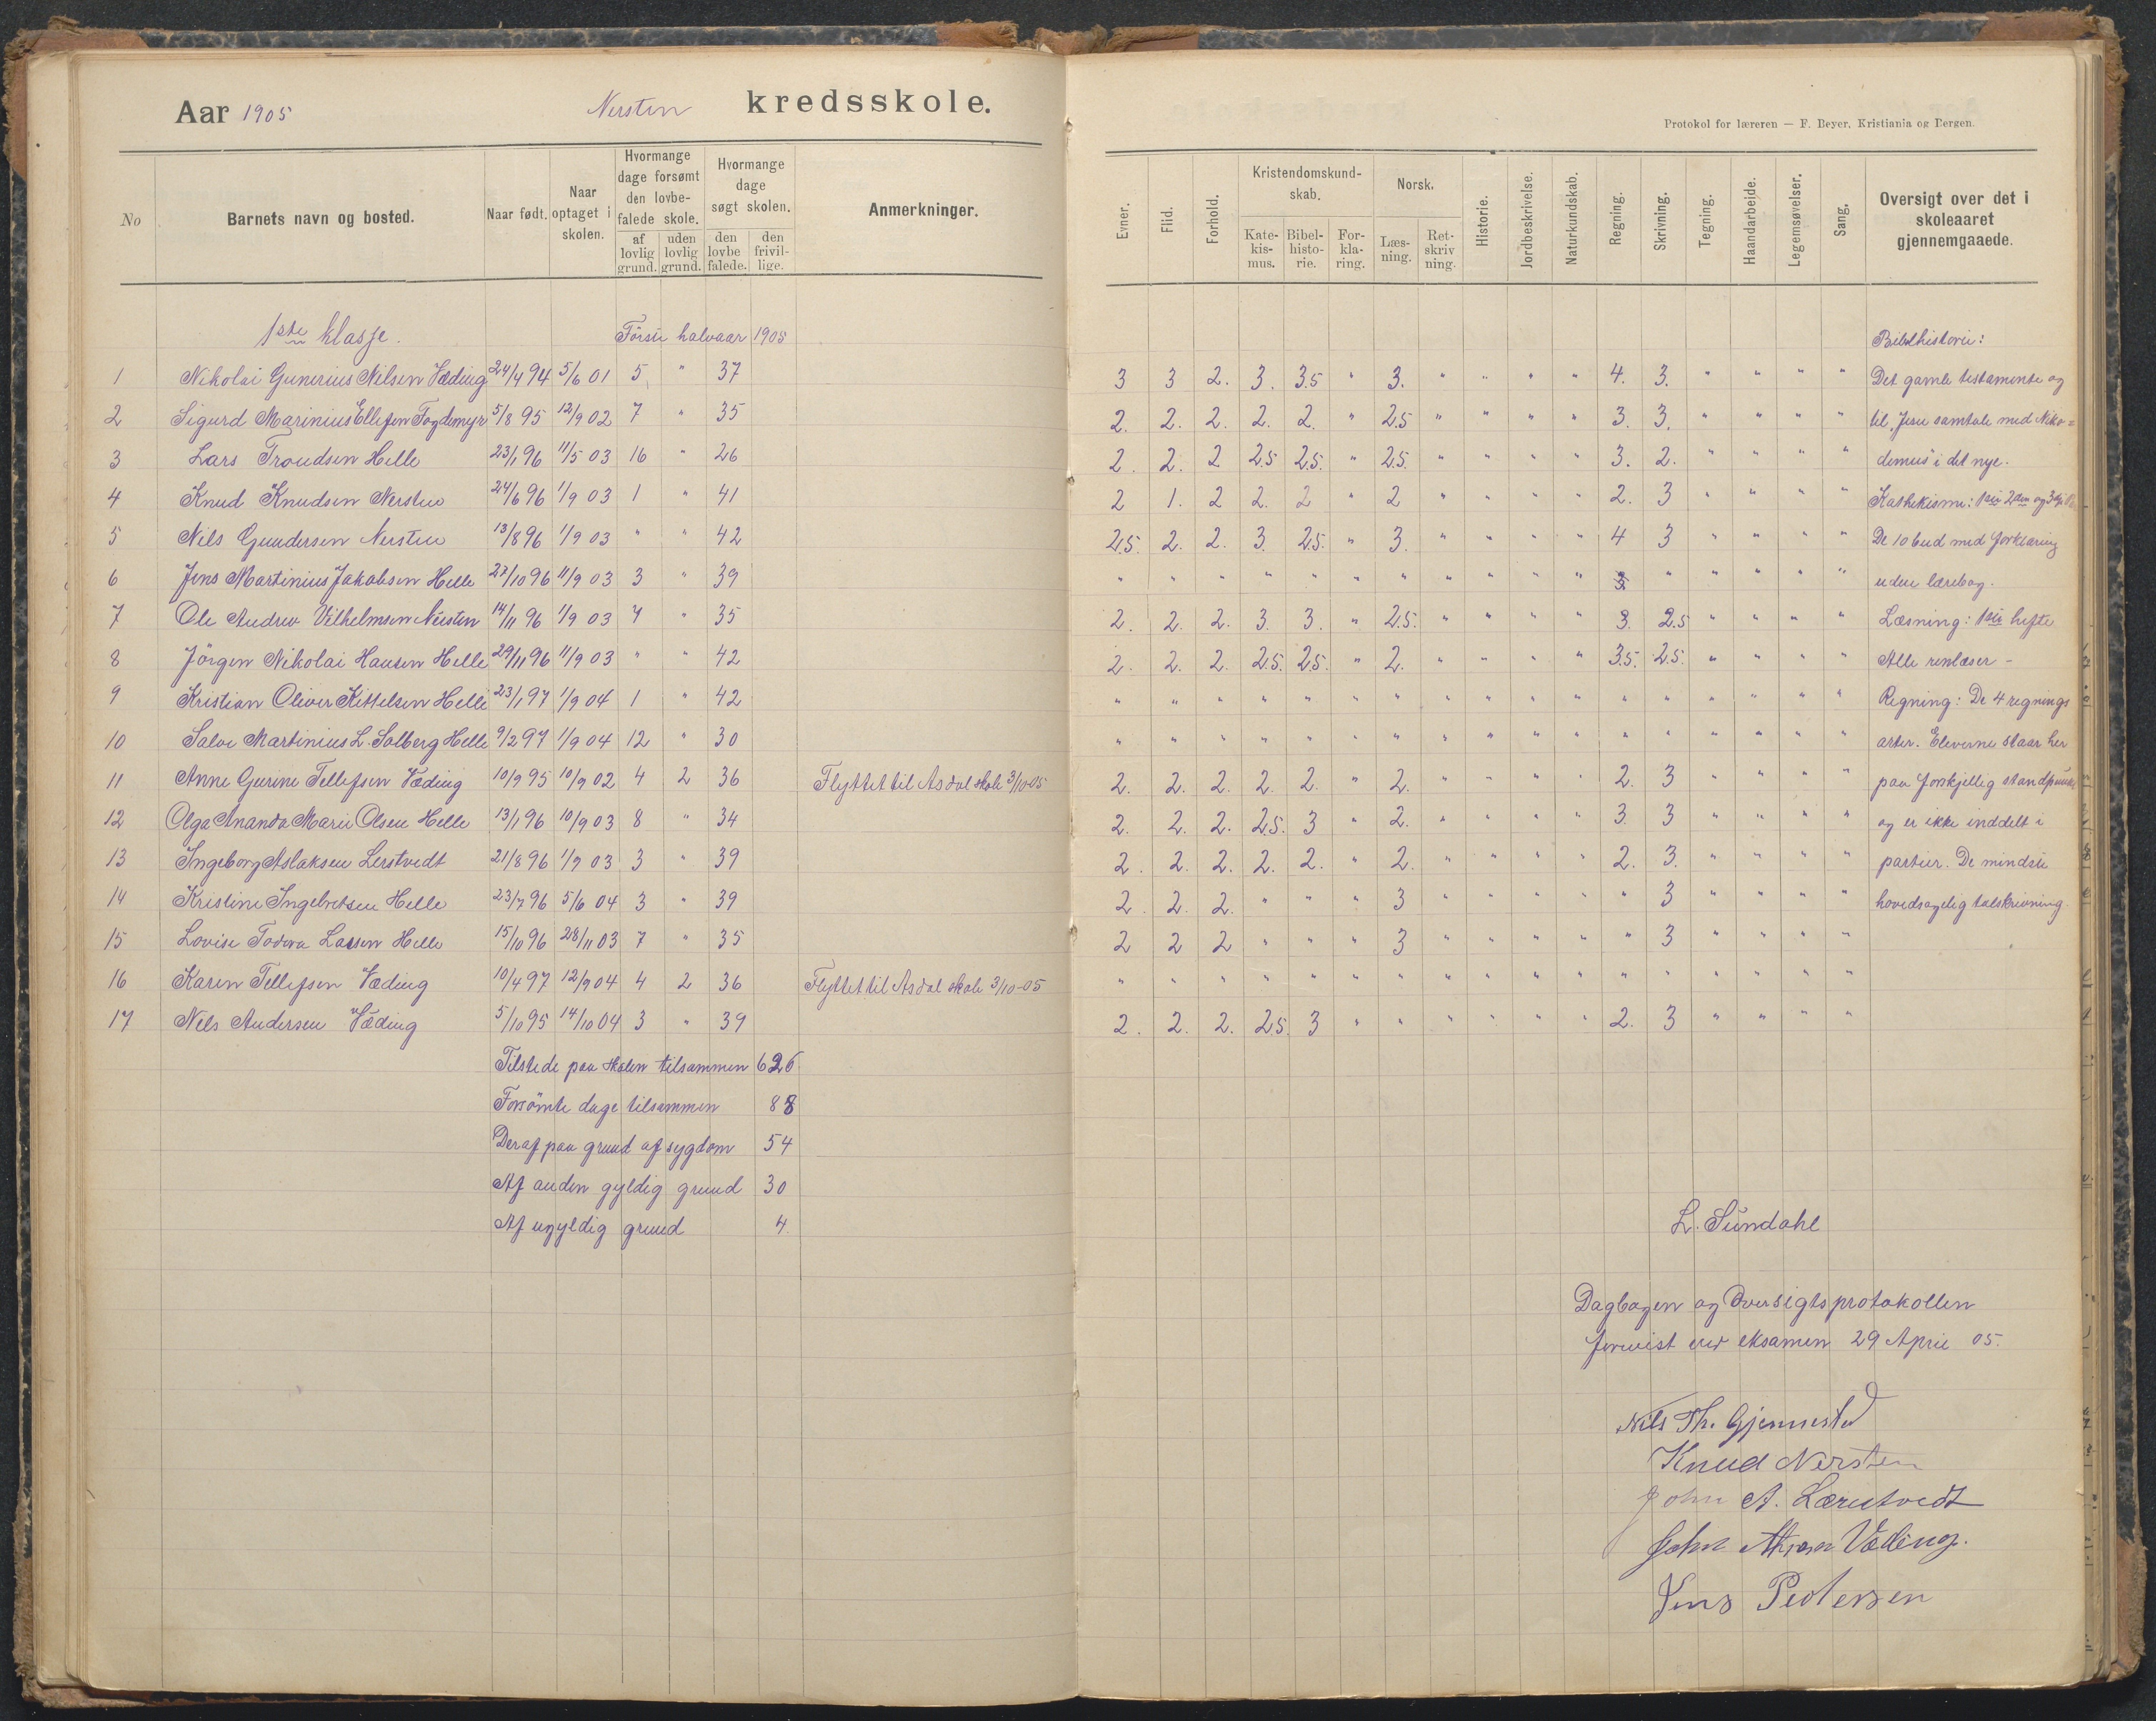 Aar 1905 Nersten kredsskole.
Protokol for læreren — F. Beyer, Kristiania og Bergen.
No Barnets navn og bosted. Naar født. Naar optaget i skolen. Hvormange dage forsømt den lovbefalede skole. af lovlig grund. uden lovlig grund. Hvormange dage søgt skolen. den lovbefalede. den frivillige. Anmerkninger.
Evner. Flid. Forhold. Kristendomskundskab. Katekismus. Bibelhistorie. Forklaring. Norsk. Læsning. Retskrivning. Historie. Jordbeskrivelse. Naturkundskab. Regning. Skrivning. Tegning. Haandarbeide. Legemsøvelser. Sang. Oversigt over det i skoleaaret gjennemgaaede.
1ste klasse. Første halvaar 1905 Bibelhistorie:
1 Nikolai Gunerius Nilsen Væding 24/4 94 5/6 01 5 " 37 3 3 2. 3. 3.5 " 3. " " " " 4. 3. " " " " Det gamle testamente og
2 Sigurd Marinius Ellefsen Fogdemyr 5/8 95 12/9 02 7 " 35 2. 2. 2. 2. 2. " 2.5 " " " " 3. 3. " " " " til "Jesu samtale med Niko=
3 Lars Troudsen Helle 23/1 96 11/5 03 16 " 26 2. 2. 2 2.5 2.5. " 2.5. " " " " 3. 2. " " " " demus" i det nye.
4 Knud Knudsen Nersten 24/6 96 1/9 03 1 " 41 2 1. 2 2. 2 " 2 " " " " 2. 3 " " " " Kathekisme: 1ste 2den og 3dje
5 Nils Gundersen Nersten 13/8 96 1/9 03 " " 42 2.5. 2. 2. 3. 2.5. " 3. " " " " 4 3 " " " " De 10 bud med forklaring
6 Jens Martinius Jakobsen Helle 27/10 96 11/9 03 3 " 39 " " " " " " " " " " " 3. " " " " " uden lærebog.
7 Ole Andrew Vilhelmsen Nersten 14/11 96 1/9 03 7 " 35 2. 2. 2. 3. 3. " 2.5. " " " " 3. 2.5 " " " " Læsning: 1ste hefte
8 Jörgen Nikolai Hansen Helle 29/11 96 11/9 03 " " 42 2. 2. 2. 2.5. 2.5. " 2. " " " " 3.5. 2.5. " " " " Alle renlæser -
9 Kristian Oliver Kittelsen Helle 23/1 97 1/9 04 1 " 42 " " " " " " " " " " " " " " " " " Regning: De 4 regnings
10 Salve Martinius L. Solberg Helle 9/2 97 1/9 04 12 " 30 " " " " " " " " " " " " " " " " " arter. Eleverne staar her
11 Anne Gurine Tellefsen Væding 10/9 95 10/9 02 4 2 36 Flyttet til Asdal skole 3/10-05 2. 2. 2. 2. 2. " 2. " " " " 2. 3 " " " " paa forskjellig standpunkt
12 Olga Ananda Marie Olsen Helle 13/1 96 10/9 03 8 " 34 2. 2. 2. 2.5. 3 " 2. " " " " 3. 3 " " " " og er ikke inddelt i
13 Ingeborg Aslaksen Lerstvedt 21/8 96 1/9 03 3 " 39 2. 2. 2. 2. 2. " 2. " " " " 2. 3. " " " " partier. De mindste
14 Kristine Ingebretsen Helle 23/7 96 5/6 04 3 " 39 2. 2. 2. " " " 3 " " " " " 3 " " " " hovedsagelig talskrivning.
15 Lovise Todora Larsen Helle 15/10 96 28/11 03 7 " 35 2 2 2 " " " 3 " " " " " 3 " " " "
16 Karen Tellefsen Væding 10/4 97 12/9 04 4 2 36 Flyttet til Asdal skole 3/10-05 " " " " " " " " " " " " " " " " "
17 Nils Andersen Væding 5/10 95 14/10 04 3 " 39 2. 2. 2. 2.5. 3 " " " " " " 2. 3 " " " "
Tilstede paa skolen tilsammen 626
Forsömte dage tilsammen 88
Deraf paa grund af sygdom 54
Af anden gyldig grund 30
Af ugyldig grund 4.
L. Sundahl
Dagbogen og Oversigtsprotokollen
forevist ved eksamen 29 April 05.
Nils Th. Gjennestad
Knud Nersten
John A. Lærestvedt
John Væding.
Jens Pedersen